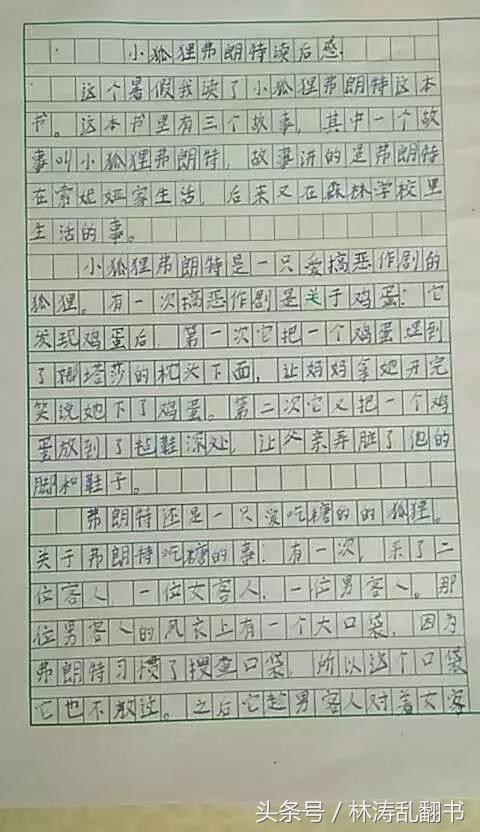 小狐狸弗朗特读后感
这个暑假我读了小狐狸弗朗特这本
书。这本书里有三个故事，其中一个故
事叫小狐狸弗朗特，故事讲的是弗朗特
在索妮娅家生活，后来又在森林学校里
生活的事。
小狐狸弗朗特是一只爱搞恶作剧的
狐狸。有一次搞恶作剧是关于鸡蛋：它
发现鸡蛋后，第一次它把一个鸡蛋埋到
了娜塔莎的枕头下面，让妈妈拿她开完
笑说她下了鸡蛋。第二次它又把一个鸡
蛋放到了毡鞋深处，让父亲弄脏了他的
脚和鞋子。
弗朗特还是一只爱吃糖的的狐狸。
关于弗朗特吃糖的事：有一次，来了二
位客人，一位女客人，一位男客人。那
位男客人的风衣上有一个大口袋，因为
弗朗特习惯了搜查口袋，所以这个口袋
它也不放过。之后它趁男客人对着女客
头条号／林涛乱翻书